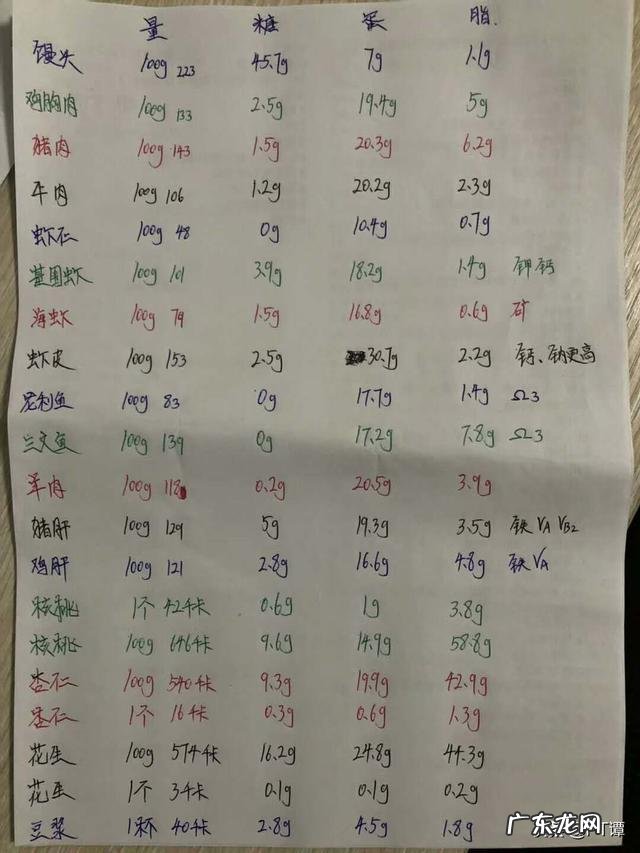 量 糖 蛋 脂
馒头 100g 223 45.7g 7g 1.1g
鸡胸肉 100g 133 2.5g 19.4g 5g
猪肉 100g 143 1.5g 20.3g 6.2g
牛肉 100g 106 1.2g 20.2g 2.3g
虾仁 100g 48 0g 10.4g 0.7g
基围虾 100g 101 3.9g 18.2g 1.4g 钾钙
海虾 100g 79 1.5g 16.8g 0.6g 矿
虾皮 100g 153 2.5g 30.7g 2.2g 钙、钠更高
龙利鱼 100g 83 0g 17.7g 1.4g Ω3
三文鱼 100g 139 0g 17.2g 7.8g Ω3
羊肉 100g 118 0.2g 20.5g 3.9g
猪肝 100g 129 5g 19.3g 3.5g 铁 VA VB2
鸡肝 100g 121 2.8g 16.6g 4.8g 铁 VA
核桃 1个 42千卡 0.6g 1g 3.8g
核桃 100g 646千卡 9.6g 14.9g 58.8g
杏仁 100g 540千卡 9.3g 19.9g 42.9g
杏仁 1个 16千卡 0.3g 0.6g 1.3g
花生 100g 574千卡 16.2g 24.8g 44.3g
花生 1个 3千卡 0.1g 0.1g 0.2g
豆浆 1杯 40千卡 2.8g 4.5g 1.8g
广东龙网
谭